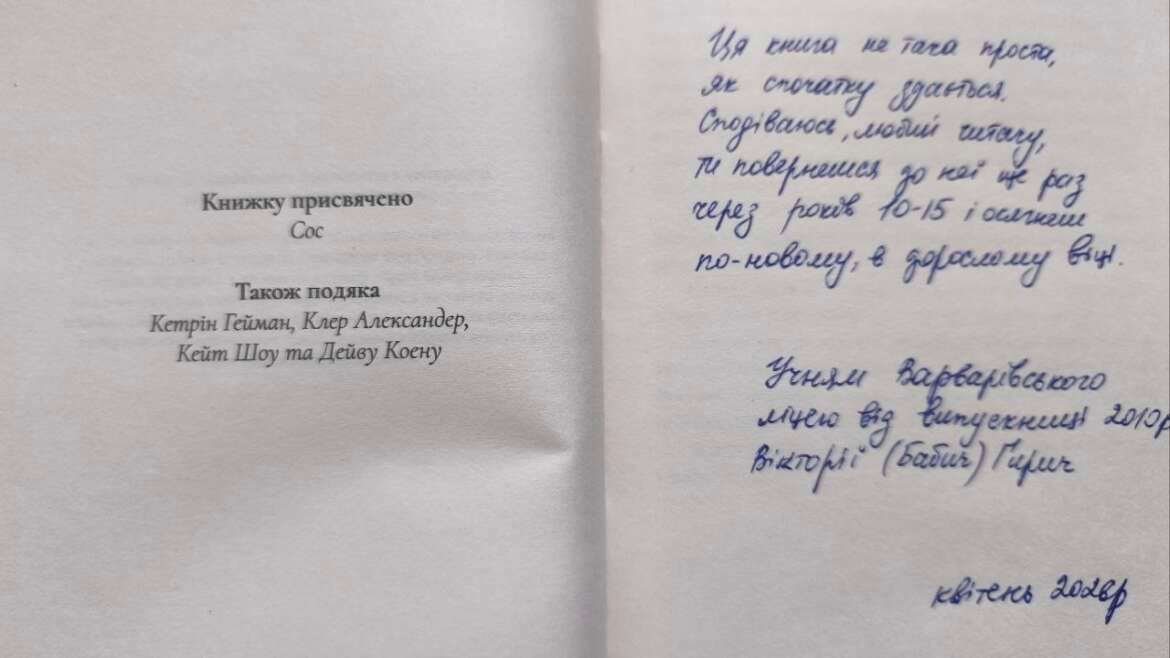 Книжку присвячено
Сос
Також подяка
Кетрін Гейман, Клер Александер,
Кейт Шоу та Дейву Коену
Ця книга не така проста,
як спочатку здається.
Сподіваюсь, любий читачу,
ти повернешся до неї ще раз
через років 10-15 і осягнеш
по-новому, в дорослому віці.
Учням Варварівського
ліцею від випускниці 2010р
Вікторії (Бабич) Гирич
квітень